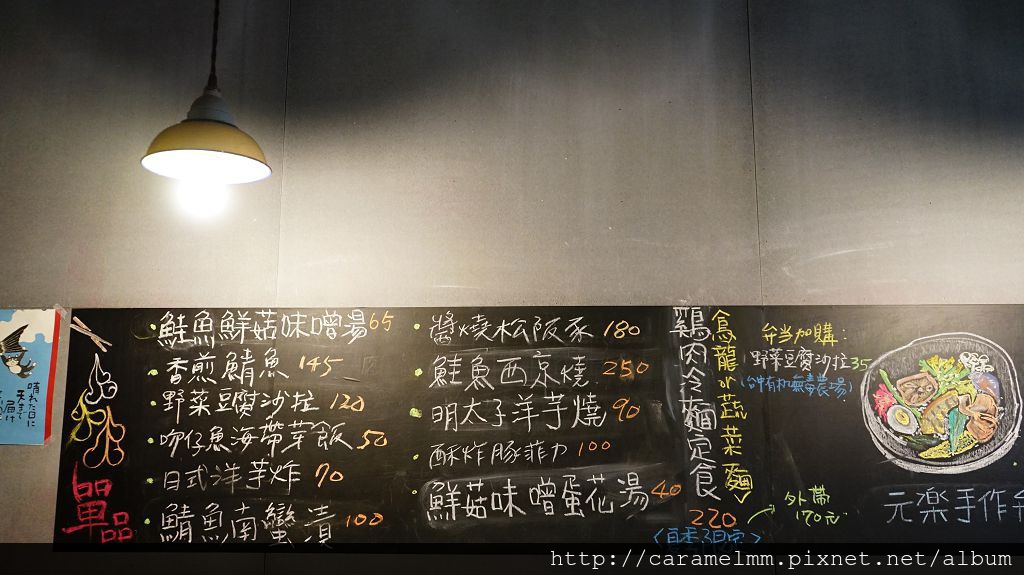 鮭魚鮮菇味噌湯 65
香煎鯖魚 145
野菜豆腐沙拉 120
吻仔魚海帶芽飯 50
日式洋芋炸 70
鯖魚南蠻漬 100
單品
醬燒松阪豕 180
鮭魚西京燒 250
明太子洋芋燒 90
酥炸豚菲力 100
鮮菇味噌蛋花湯 40
鶏肉冷麵定食
烏龍or蔬菜麵
220
外帶
170元
<夏季限定>
弁当加購:
野菜豆腐沙拉 35
元楽手作弁
晴れた日に
天まで
届け
http://caramelmm.pixnet.net/album